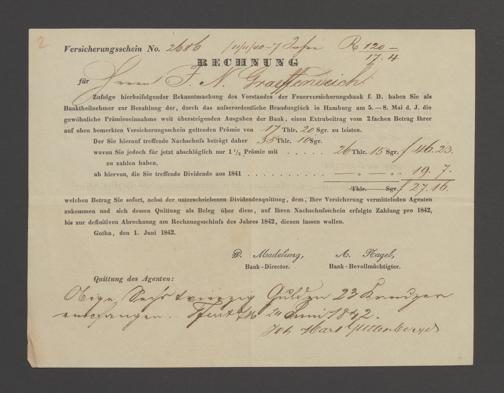 2
Versicherungsschein No. 2686 7 Jahre R 120 —
17. 4
RECHNUNG
für Herrn J. N.
Zufolge hierbeifolgender Bekanntmachung des Vorstandes der Feuerversicherungsbank f. D. haben Sie als
Banktheilnehmer zur Bezahlung der, durch das aufserordentliche Brandunglück in Hamburg am 5. — 8. Mai d. J. die
gewöhnliche Prämieneinnahme weit übersteigenden Ausgaben der Bank, einen Extrabeitrag vom 2fachen Betrag Ihrer
auf oben bemerkten Versicherungsschein geltenden Prämie von 17 Thlr. 20 Sgr. zu leisten.
Der Sie hierauf treffende Nachschufs beträgt daher 35 Thlr. 10 Sgr.
wovon Sie jedoch für jetzt abschläglich nur 1 1/2 Prämie mit . . . . . 26 Thlr. 15 Sgr. f 46. 23.
zu zahlen haben,
ab hiervon, die Sie treffende Dividende aus 1841 . . . . . — — 19. 7.
Thlr. Sgr. f 27. 16
welchen Betrag Sie sofort, nebst der unterschriebenen Dividendenquittung, dem, Ihre Versicherung vermittelnden Agenten
zukommen und sich dessen Quittung als Beleg über diese, auf Ihren Nachschufsschein erfolgte Zahlung pro 1842,
bis zur definitiven Abrechnung am Rechnungsschlufs des Jahres 1842, dienen lassen wollen.
Gotha, den 1. Juni 1842.
D. Madelung, A. Nagel,
Bank-Director. Bank-Bevollmächtigter.
Quittung des Agenten:
Obige Gulden 23 Kreuzer
empfangen. Juni 1842.
Joh. Carl